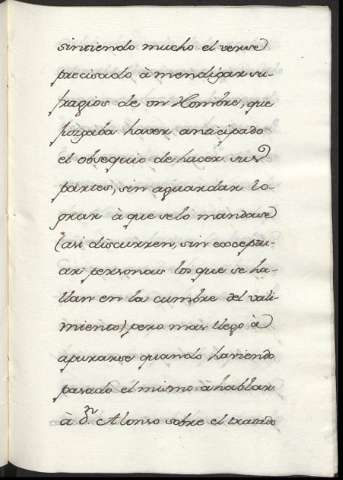 sintiendo mucho el verse
precisado à mendigar su-
fragios de un Hombre, que
juzgaba haver anticipado
el obsequio de hacer sus
partes, sin aguardar lo-
grar à que se lo mandase
(asi discurren, sin exceptu-
ar personas los que se ha-
llan en la cumbre del vali-
miento) pero mas llegó à
apurarse quando haviendo
pasado el mismo à hablar
à Dn. Alonso sobre el tratado